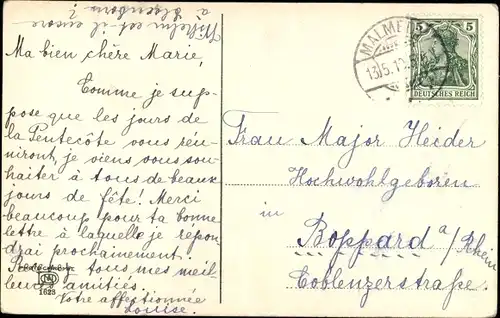 Wilhelm est il encore
à Ikenborn ?
Ma bien chère Marie,
Comme je sup-
pose que les jours de
la Pentecôte vous réu-
niront, je viens vous sou-
haiter à tous de beaux
jours de fête! Merci
beaucoup pour ta bonne
lettre à laquelle je répon
drai prochainement.
à tous mes meil
leurs amitiés.
Votre affectionnée
Louise.
1623
MALME
13.5.1
5 5
DEUTSCHES REICH
Frau Major Heider
Hochwohlgeboren
in
Boppard a/Rhein
Coblenzerstraße.